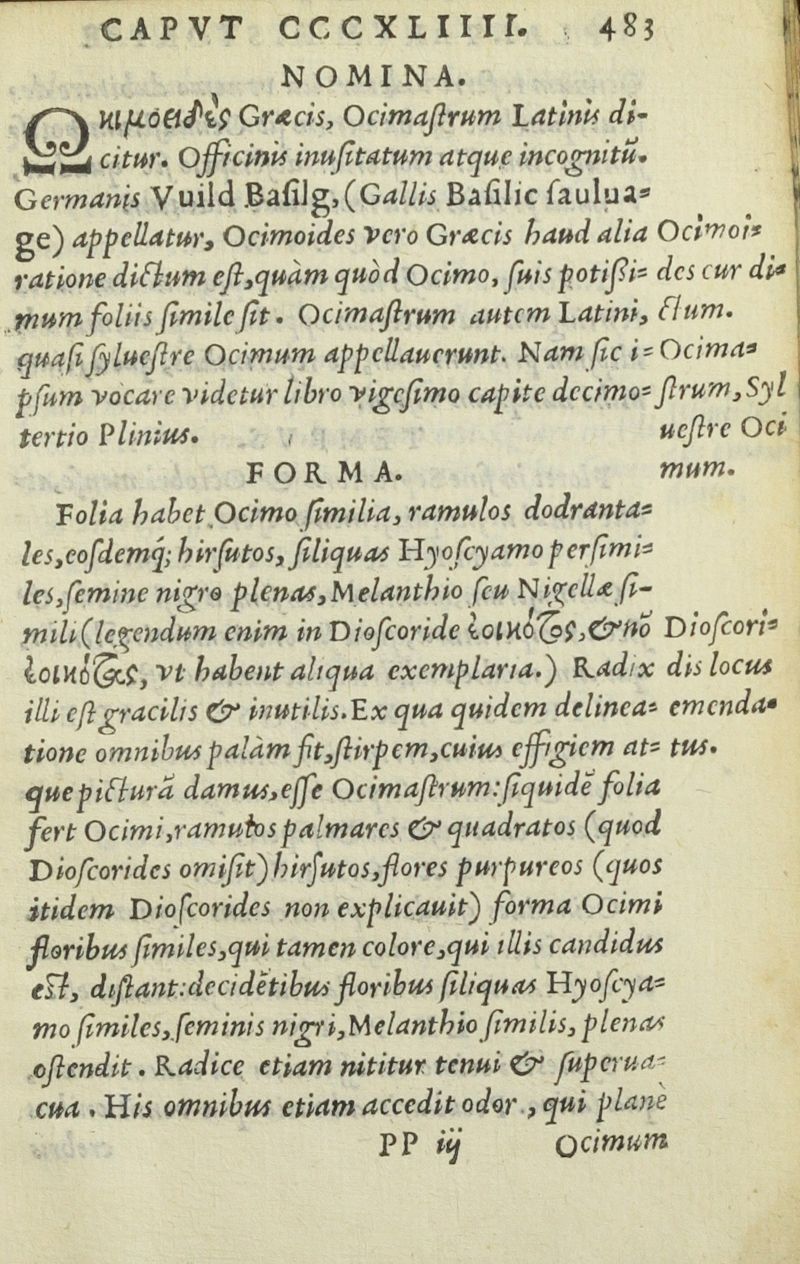 CAPVT CCCXLIIII. 483
NOMINA.
Ὠκιμοειδὲς Græcis, Ocimaſtrum Latinis di-
citur. Officinis inuſitatum atque incognitũ.
Germanis Vuild Baſilg, (Gallis Baſilic ſaulua=
ge) appellatur, Ocimoides vero Græcis haud alia
ratione dictum eſt, quàm quòd Ocimo, ſuis potißi=
mum foliis ſimile ſit. Ocimaſtrum autem Latini,
quaſi ſylueſtre Ocimum appellauerunt. Nam ſic i=
pſum vocare videtur libro vigeſimo capite decimo=
tertio Plinius.
Ocimoi=
des cur di=
ctum.
Ocima=
ſtrum, Syl
ueſtre Oci
mum.
FORMA.
Folia habet Ocimo ſimilia, ramulos dodranta=
les, eoſdemq́; hirſutos, ſiliquas Hyoſcyamo perſimi=
les, ſemine nigro plenas, Melanthio ſeu Nigellæ ſi-
mili (legendum enim in Dioſcoride ἐοικότος, & nõ
ἐοικότας, vt habent aliqua exemplaria.) Radix
illi eſt gracilis & inutilis. Ex qua quidem delinea=
tione omnibus palàm fit, ſtirpem, cuius effigiem at=
que picturã damus, eſſe Ocimaſtrum: ſiquidẽ folia
fert Ocimi, ramulos palmares & quadratos (quod
Dioſcorides omiſit) hirſutos, flores purpureos (quos
itidem Dioſcorides non explicauit) forma Ocimi
floribus ſimiles, qui tamen colore, qui illis candidus
eſt, diſtant: decidẽtibus floribus ſiliquas Hyoſcya=
mo ſimiles, ſeminis nigri, Melanthio ſimilis, plenas
oſtendit. Radice etiam nititur tenui & ſuperua=
cua. His omnibus etiam accedit odor, qui planè
Dioſcori=
dis locus
emenda=
tus.
PP iij Ocimum